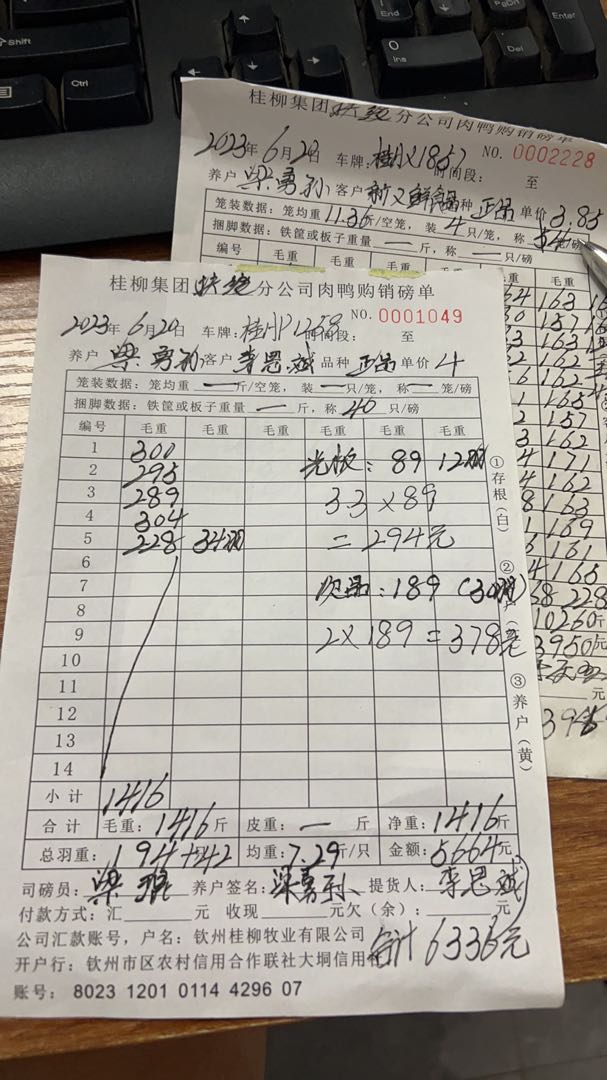 Shift
Ctrl
End
PgDn
Enter
0
Ins
Del
桂柳集团 分公司肉鸭购销磅单
2023年 6月20日 车牌: 桂 1857 时间段: 至
NO. 0002228
养户 梁勇孙 客户 品种 正品 单价 3.85
笼装数据: 笼均重 11.36 斤/空笼, 装 4 只/笼, 称 笼/磅
捆脚数据: 铁筐或板子重量 一 斤, 称 一 只/磅
编号 毛重
毛重 毛重
163
157
163
162
162
165
157
162
171
162
163
169
161
4 165
228
10260斤
3950元
元
桂柳集团 分公司肉鸭购销磅单
NO. 0001049
2023年 6月20日 车牌: 桂 1258 时间段: 至
养户 梁勇孙 客户 李思斌 品种 正品 单价 4
笼装数据: 笼均重 一 斤/空笼, 装 一 只/笼, 称 一 笼/磅
捆脚数据: 铁筐或板子重量 一 斤, 称 40 只/磅
编号 毛重 毛重 毛重 毛重 毛重 毛重
1 300 光板: 89 12羽
2 295
3 289 3.3×89
4 304
5 228 34羽 = 294元
6
7 次品: 189 (30羽)
8
9 2×189=378元
10
11
12
13
14
小计 1416
合计 毛重: 1416斤 皮重: 一 斤 净重: 1416斤
总羽重: 194+42 均重: 7.29斤/只 金额: 5664元
①存根(白)
②
③养户(黄)
司磅员: 梁琨 养户签名: 梁勇孙 提货人: 李思斌
付款方式: 汇 元 收现 元欠(余): 元
公司汇款账号, 户名: 钦州桂柳牧业有限公司 合计 6336元
开户行: 钦州市区农村信用合作联社大垌信用社
账号: 8023 1201 0114 4296 07